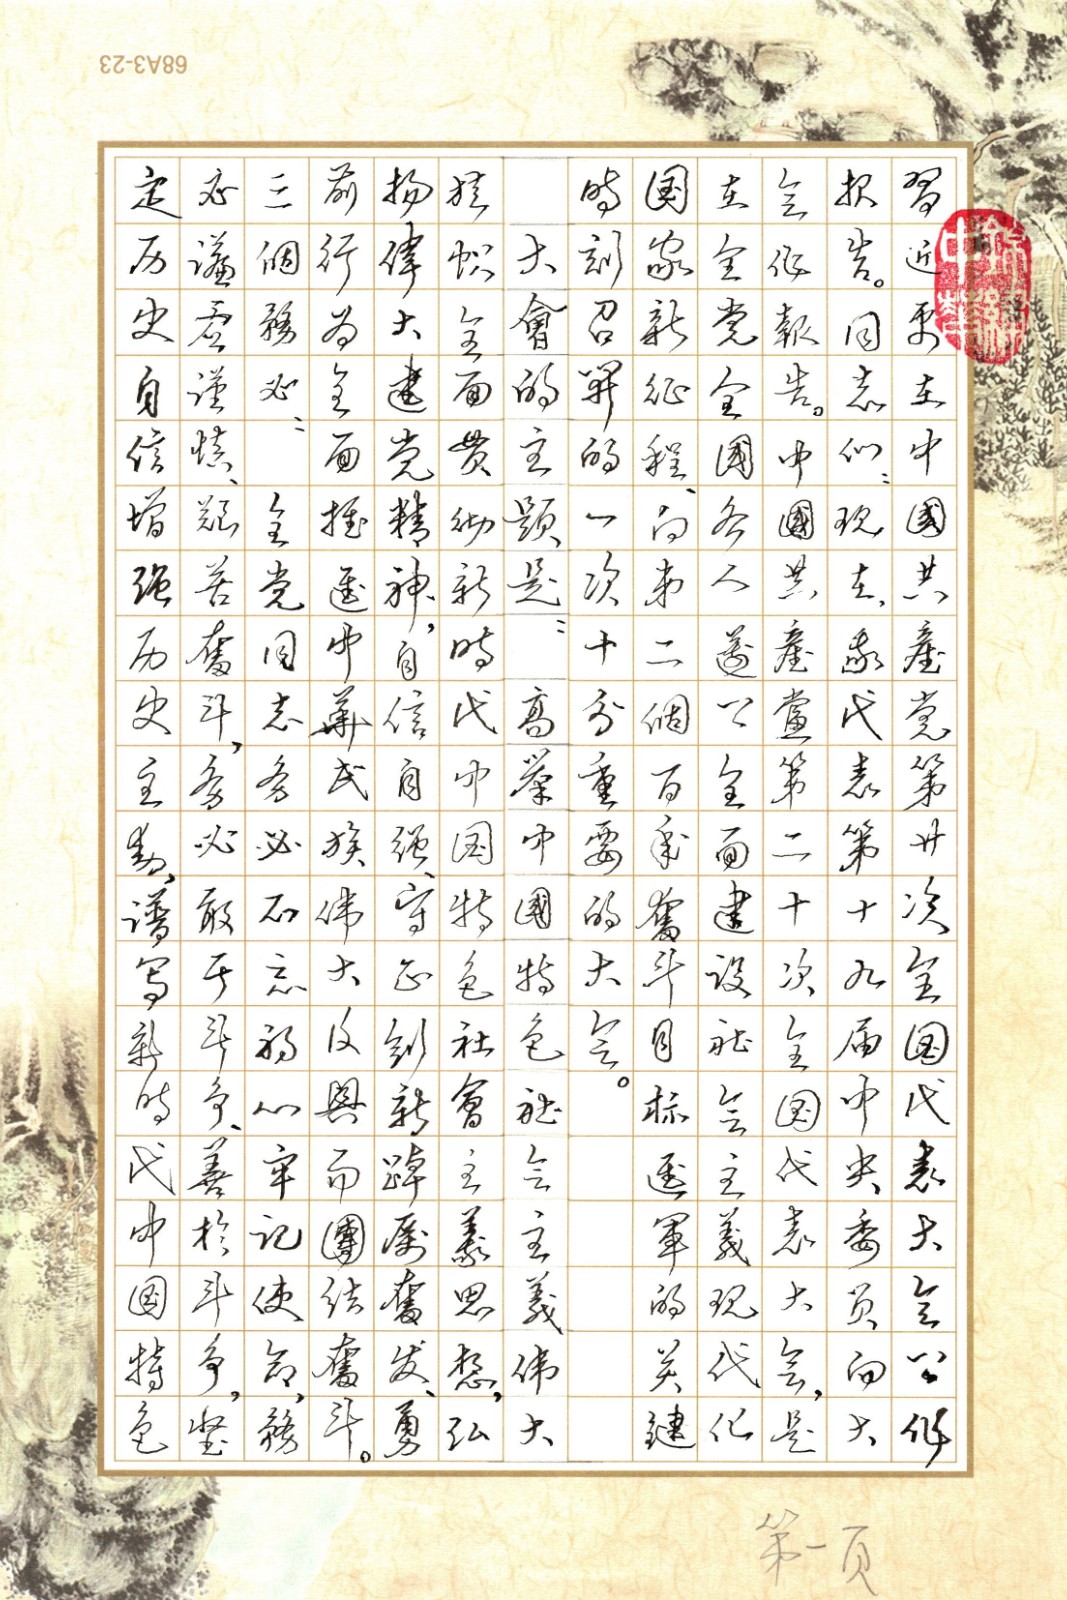 68A3-23
習近平在中國共產党第廿次全国代表大会上作
报告。同志们:现在,我代表第十九届中央委员向大
会作報告。中國共產黨第二十次全国代表大会,是
在全党全國各人迈上全面建设社会主義现代化
國家新征程、向第二個百年奮斗目标進軍的关键
時刻召開的一次十分重要的大会。
大會的主题是:高举中國特色社会主義伟大
旗帜全面贯彻新時代中国特色社會主義思想,弘
扬偉大建党精神,自信自强、守正创新踔厲奮发、勇
前行為全面推進中華民族伟大复興而團结奮斗。
三個務必:全党同志务必不忘初心牢记使命,務
必谦虚谨慎、艰苦奮斗,务必敢于斗争、善於斗争,坚
定历史自信增强历史主動,谱写新時代中国特色
錦繡中華
第一页